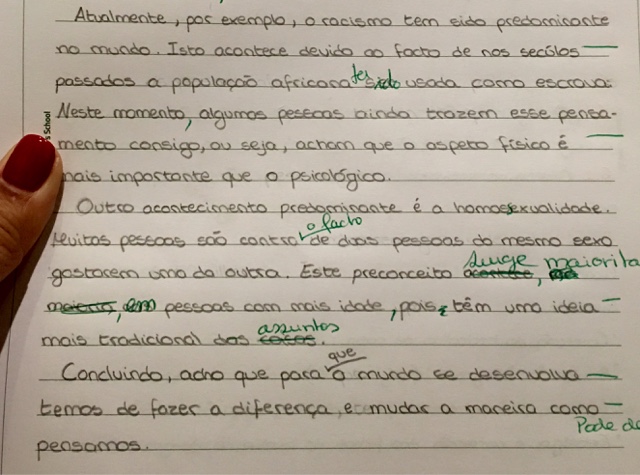 Atualmente, por exemplo, o racismo tem sido predominante
no mundo. Isto acontece devido ao facto de nos secúlos
passados a população africana ter sido usada como escrava.
Neste momento, algumas pessoas ainda trazem esse pensa-
's School
mento consigo, ou seja, acham que o aspeto físico é
mais importante que o psicológico.
Outro acontecimento predominante é a homossexualidade.
o facto
Muitas pessoas são contra de duas pessoas do mesmo sexo
surge maiorita
gostarem uma da outra. Este preconceito acontece,
pessoas com mais idade, pois, têm uma ideia
assuntos
mais tradicional das coisas.
que
Concluindo, acho que para o mundo se desenvolva
temos de fazer a diferença, e mudar a maneira como
Pode de
pensamos.